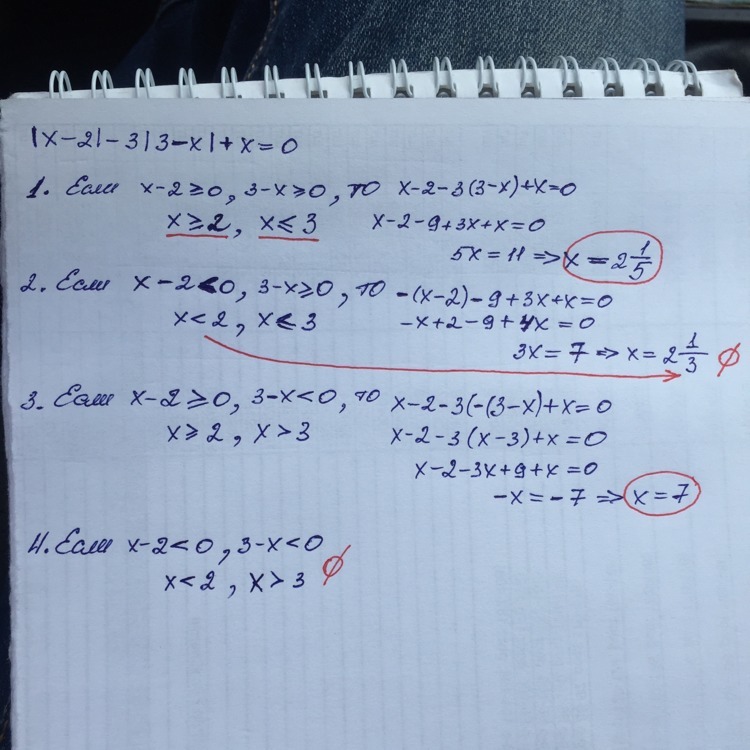 |x-2|-3|3-x|+x=0
1. Если x-2≥0, 3-x≥0, то x-2-3(3-x)+x=0
x≥2, x≤3 x-2-9+3x+x=0
5x=11 => x=2 1/5
2. Если x-2<0, 3-x≥0, то -(x-2)-9+3x+x=0
x<2, x≤3 -x+2-9+4x=0
3x=7 => x=2 1/3 ∅
3. Если x-2≥0, 3-x<0, то x-2-3(-(3-x)+x=0
x≥2, x>3 x-2-3(x-3)+x=0
x-2-3x+9+x=0
-x=-7 => x=7
4. Если x-2<0, 3-x<0
x<2, x>3 ∅